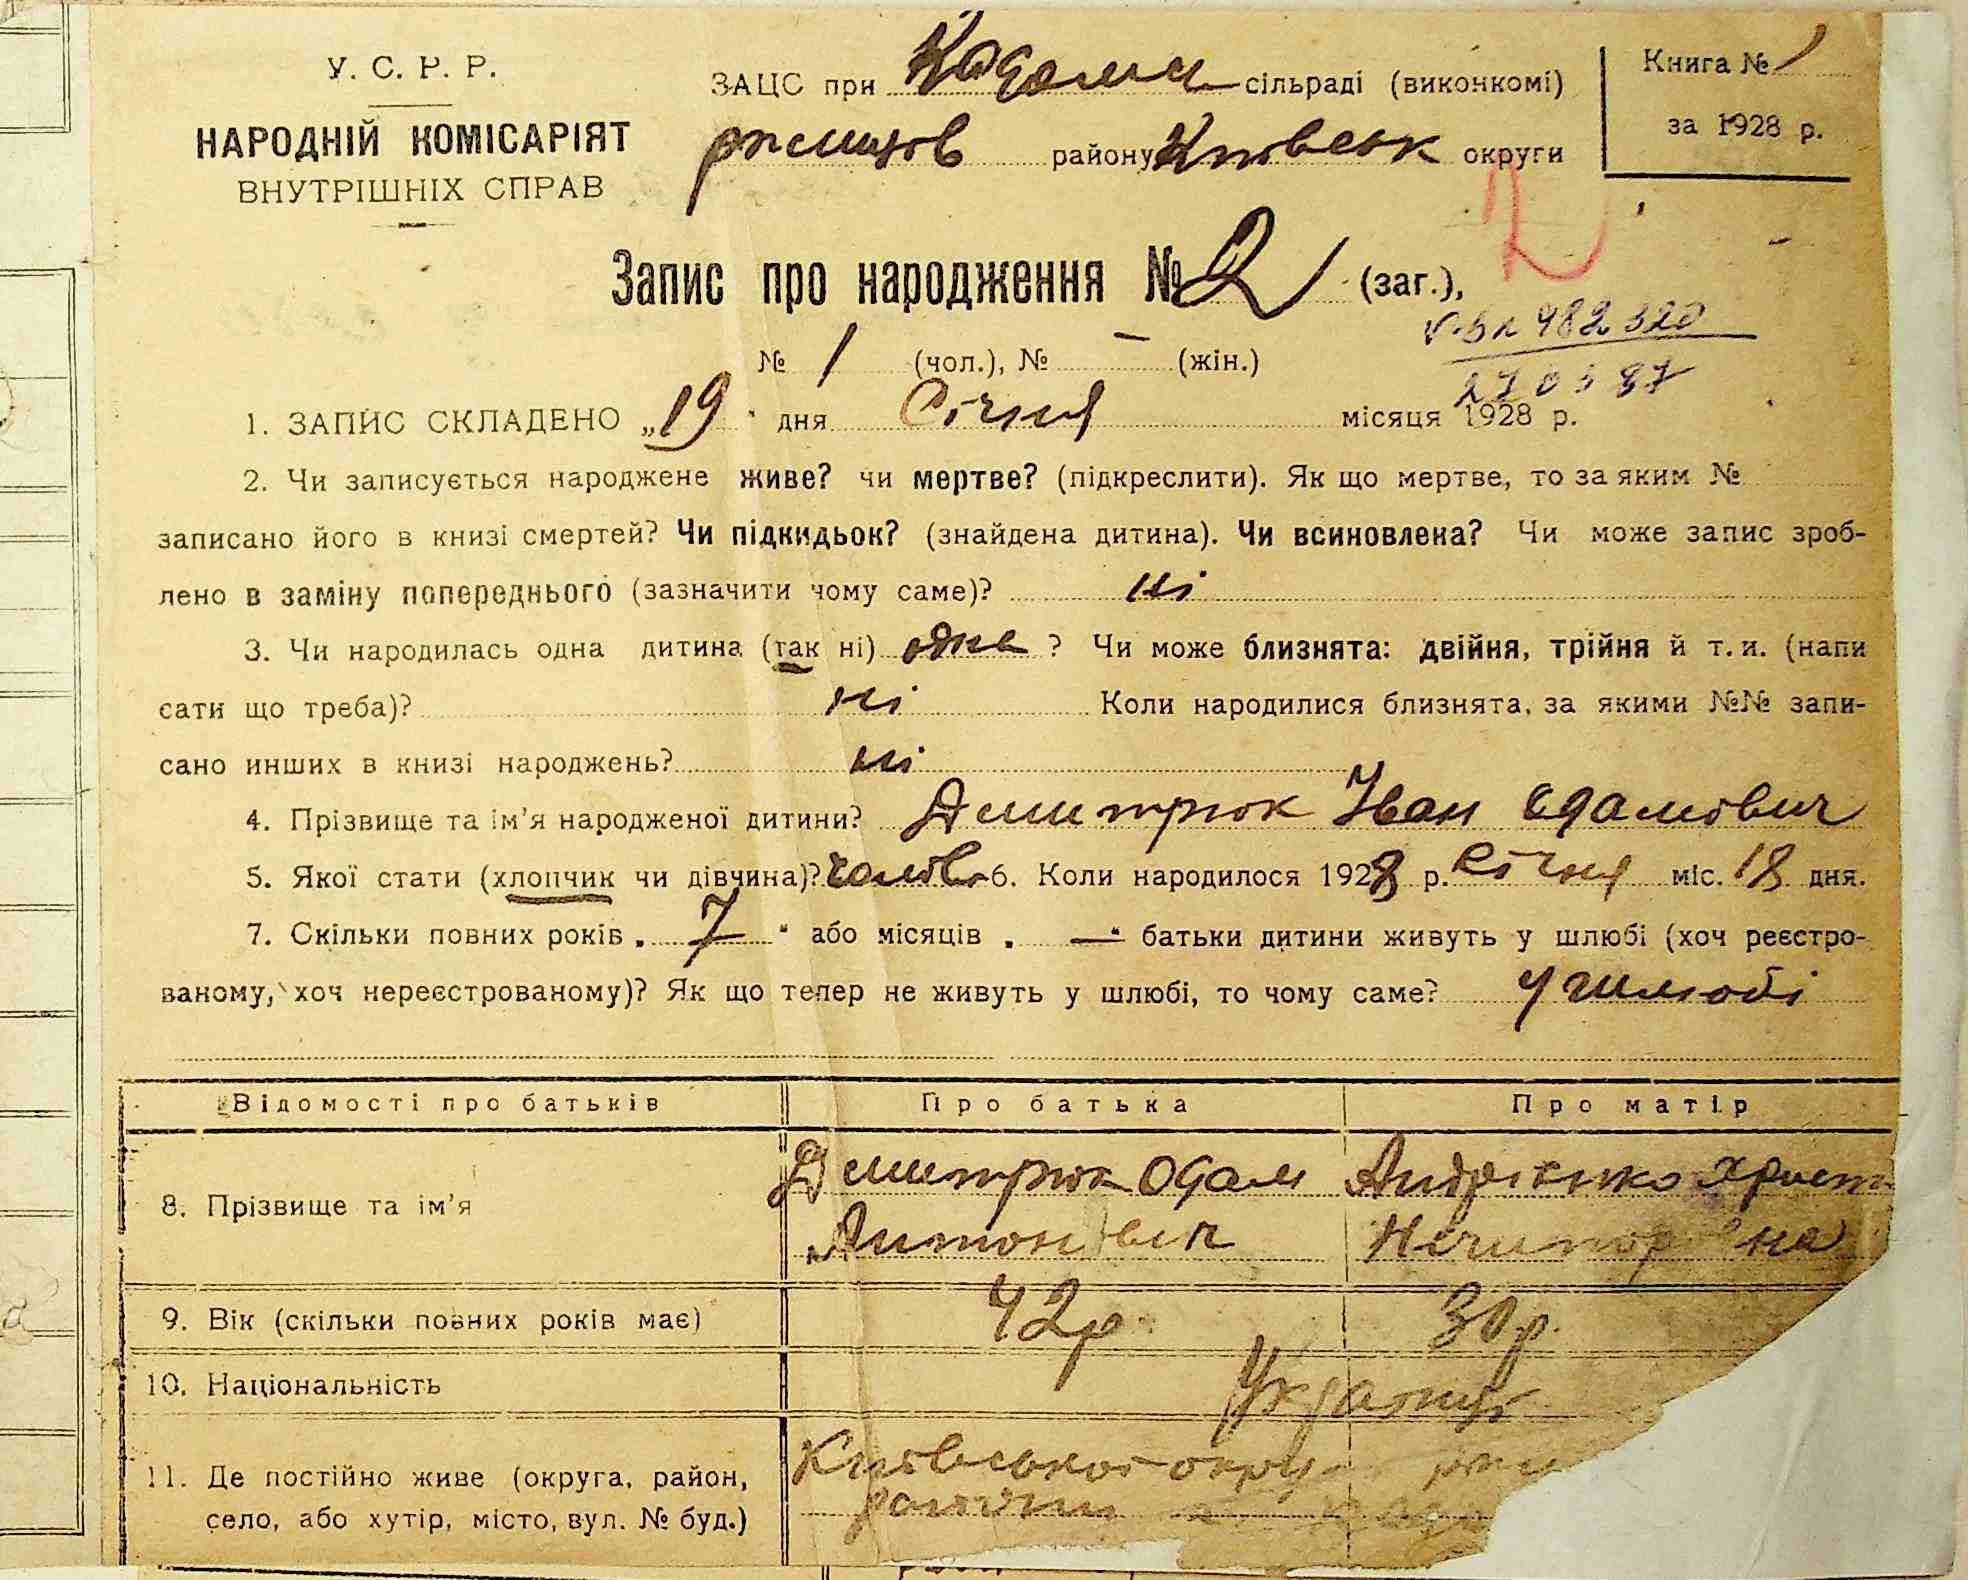 У. С. Р. Р.
НАРОДНІЙ КОМІСАРІЯТ
ВНУТРІШНІХ СПРАВ
ЗАЦС при Кадоми сільраді (виконкомі)
ржищів району Київськ округи
Книга № 1
за 1928 р.
Запис про народження № 2 (заг.),
2
№ 1 (чол.), № — (жін.)
982320
1. ЗАПИС СКЛАДЕНО „19“ дня Січня місяця 1928 р.
2. Чи записується народжене живе? чи мертве? (підкреслити). Як що мертве, то за яким №
записано його в книзі смертей? Чи підкидьок? (знайдена дитина). Чи всиновлена? Чи може запис зроб-
лено в заміну попереднього (зазначити чому саме)? ні
3. Чи народилась одна дитина (так ні) одна ? Чи може близнята: двійня, трійня й т. и. (напи
сати що треба)? ні Коли народилися близнята, за якими №№ запи-
сано инших в книзі народжень? ні
4. Прізвище та ім'я народженої дитини? Дмитрюк Іван Одамович
5. Якої стати (хлопчик чи дівчина)? чолов. 6. Коли народилося 1928 р. Січня міс. 18 дня.
7. Скільки повних років „ 7 “ або місяців „ — “ батьки дитини живуть у шлюбі (хоч реєстро-
ваному, хоч нереєстрованому)? Як що тепер не живуть у шлюбі, то чому саме? у шлюбі
Відомості про батьків Про батька Про матір
8. Прізвище та ім'я Дмитрюк Одам Антонович Андрієнко Христ Ничипоровна
9. Вік (скільки повних років має) 42р 30р.
10. Національність Українці
11. Де постійно живе (округа, район,
село, або хутір, місто, вул. № буд.)
Київської округи
району